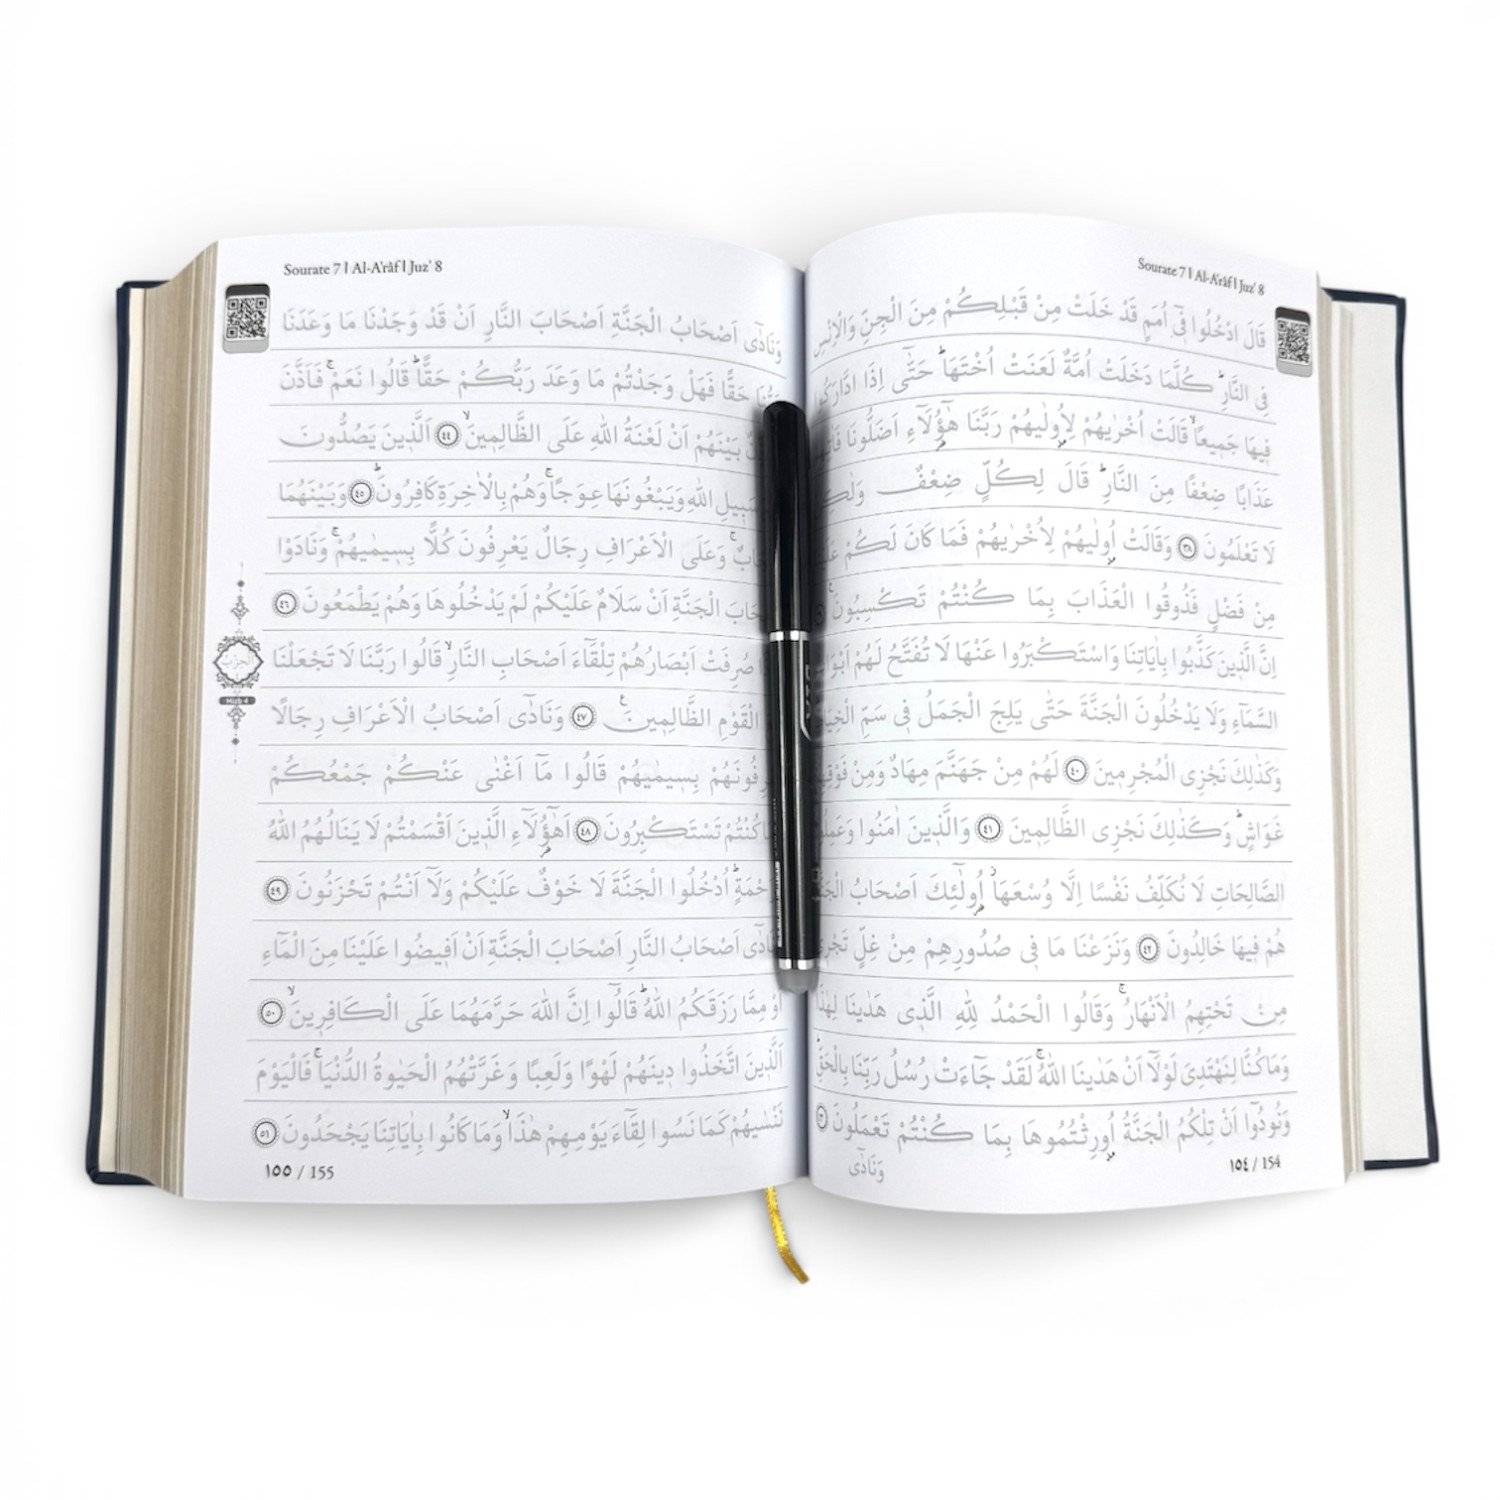 Sourate 7 | Al-A'râf | Juz' 8
قَالَ ادْخُلُوا فٖٓي اُمَمٍ قَدْ خَلَتْ مِنْ قَبْلِكُمْ مِنَ الْجِنِّ وَالْاِنْسِ
فِي النَّارِؕ كُلَّمَا دَخَلَتْ اُمَّةٌ لَعَنَتْ اُخْتَهَاؕ حَتّٰٓى اِذَا ادَّارَكُوا
فٖيهَا جَمٖيعاًۙ قَالَتْ اُخْرٰيهُمْ لِاُو۫لٰيهُمْ رَبَّنَا هٰٓؤُ۬لَٓاءِ اَضَلُّونَا
عَذَابًا ضِعْفًا مِنَ النَّارِؕ قَالَ لِكُلٍّ ضِعْفٌ
لَا تَعْلَمُونَ ٣٨ وَقَالَتْ اُو۫لٰيهُمْ لِاُخْرٰيهُمْ فَمَا كَانَ لَكُمْ
مِنْ فَضْلٍ فَذُوقُوا الْعَذَابَ بِمَا كُنْتُمْ تَكْسِبُونَ
اِنَّ الَّذٖينَ كَذَّبُوا بِاٰيَاتِنَا وَاسْتَكْبَرُوا عَنْهَا لَا تُفَتَّحُ لَهُمْ
السَّمَٓاءِ وَلَا يَدْخُلُونَ الْجَنَّةَ حَتّٰى يَلِجَ الْجَمَلُ فٖي سَمِّ
وَكَذٰلِكَ نَجْزِي الْمُجْرِمٖينَ ٤٠ لَهُمْ مِنْ جَهَنَّمَ مِهَادٌ وَمِنْ
غَوَاشٍؕ وَكَذٰلِكَ نَجْزِي الظَّالِمٖينَ ٤١ وَالَّذٖينَ اٰمَنُوا
الصَّالِحَاتِ لَا نُكَلِّفُ نَفْسًا اِلَّا وُسْعَهَاؗ اُو۬لٰٓئِكَ اَصْحَابُ
هُمْ فٖيهَا خَالِدُونَ ٤٢ وَنَزَعْنَا مَا فٖي صُدُورِهِمْ مِنْ غِلٍّ تَجْرٖي
مِنْ تَحْتِهِمُ الْاَنْهَارُۚ وَقَالُوا الْحَمْدُ لِلّٰهِ الَّذٖي هَدٰينَا لِهٰذَا
وَمَا كُنَّا لِنَهْتَدِيَ لَوْلَٓا اَنْ هَدٰينَا اللّٰهُۚ لَقَدْ جَٓاءَتْ رُسُلُ رَبِّنَا بِالْحَقِّ
وَنُودُٓوا اَنْ تِلْكُمُ الْجَنَّةُ اُو۫رِثْتُمُوهَا بِمَا كُنْتُمْ تَعْمَلُونَ
وَنَادٰٓى
١٥٤ / 154
Sourate 7 | Al-A'râf | Juz' 8
وَنَادٰٓى اَصْحَابُ الْجَنَّةِ اَصْحَابَ النَّارِ اَنْ قَدْ وَجَدْنَا مَا وَعَدَنَا
رَبُّنَا حَقًّا فَهَلْ وَجَدْتُمْ مَا وَعَدَ رَبُّكُمْ حَقًّاؕ قَالُوا نَعَمْۚ فَاَذَّنَ
بَيْنَهُمْ اَنْ لَعْنَةُ اللّٰهِ عَلَى الظَّالِمٖينَۙ ٤٤ اَلَّذٖينَ يَصُدُّونَ
سَبٖيلِ اللّٰهِ وَيَبْغُونَهَا عِوَجًاۚ وَهُمْ بِالْاٰخِرَةِ كَافِرُونَؕ ٤٥ وَبَيْنَهُمَا
وَعَلَى الْاَعْرَافِ رِجَالٌ يَعْرِفُونَ كُلًّا بِسٖيمٰيهُمْۚ وَنَادَوْا
الْجَنَّةِ اَنْ سَلَامٌ عَلَيْكُمْ لَمْ يَدْخُلُوهَا وَهُمْ يَطْمَعُونَ ٤٦
صُرِفَتْ اَبْصَارُهُمْ تِلْقَٓاءَ اَصْحَابِ النَّارِۙ قَالُوا رَبَّنَا لَا تَجْعَلْنَا
الْقَوْمِ الظَّالِمٖينَࣖ ٤٧ وَنَادٰٓى اَصْحَابُ الْاَعْرَافِ رِجَالًا
بِسٖيمٰيهُمْ قَالُوا مَٓا اَغْنٰى عَنْكُمْ جَمْعُكُمْ
كُنْتُمْ تَسْتَكْبِرُونَ ٤٨ اَهٰٓؤُ۬لَٓاءِ الَّذٖينَ اَقْسَمْتُمْ لَا يَنَالُهُمُ اللّٰهُ
اُدْخُلُوا الْجَنَّةَ لَا خَوْفٌ عَلَيْكُمْ وَلَٓا اَنْتُمْ تَحْزَنُونَ ٤٩
اَصْحَابُ النَّارِ اَصْحَابَ الْجَنَّةِ اَنْ اَفٖيضُوا عَلَيْنَا مِنَ الْمَٓاءِ
اَوْ مِمَّا رَزَقَكُمُ اللّٰهُؕ قَالُٓوا اِنَّ اللّٰهَ حَرَّمَهُمَا عَلَى الْكَافِرٖينَۙ ٥٠
اَلَّذٖينَ اتَّخَذُوا دٖينَهُمْ لَهْوًا وَلَعِبًا وَغَرَّتْهُمُ الْحَيٰوةُ الدُّنْيَاۚ فَالْيَوْمَ
نَنْسٰيهُمْ كَمَا نَسُوا لِقَٓاءَ يَوْمِهِمْ هٰذَاۙ وَمَا كَانُوا بِاٰيَاتِنَا يَجْحَدُونَ ٥١
الحزب
Hizb 4
١٥٥ / 155